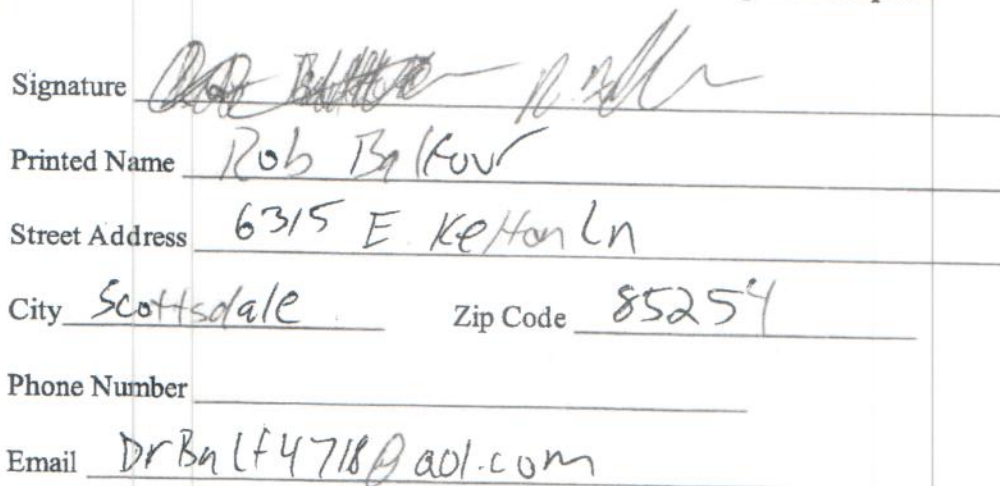 Signature R. Balf
Printed Name Rob Balfour
Street Address 6315 E. Kelton Ln
City Scottsdale Zip Code 85254
Phone Number
Email DrBalf4718@aol.com